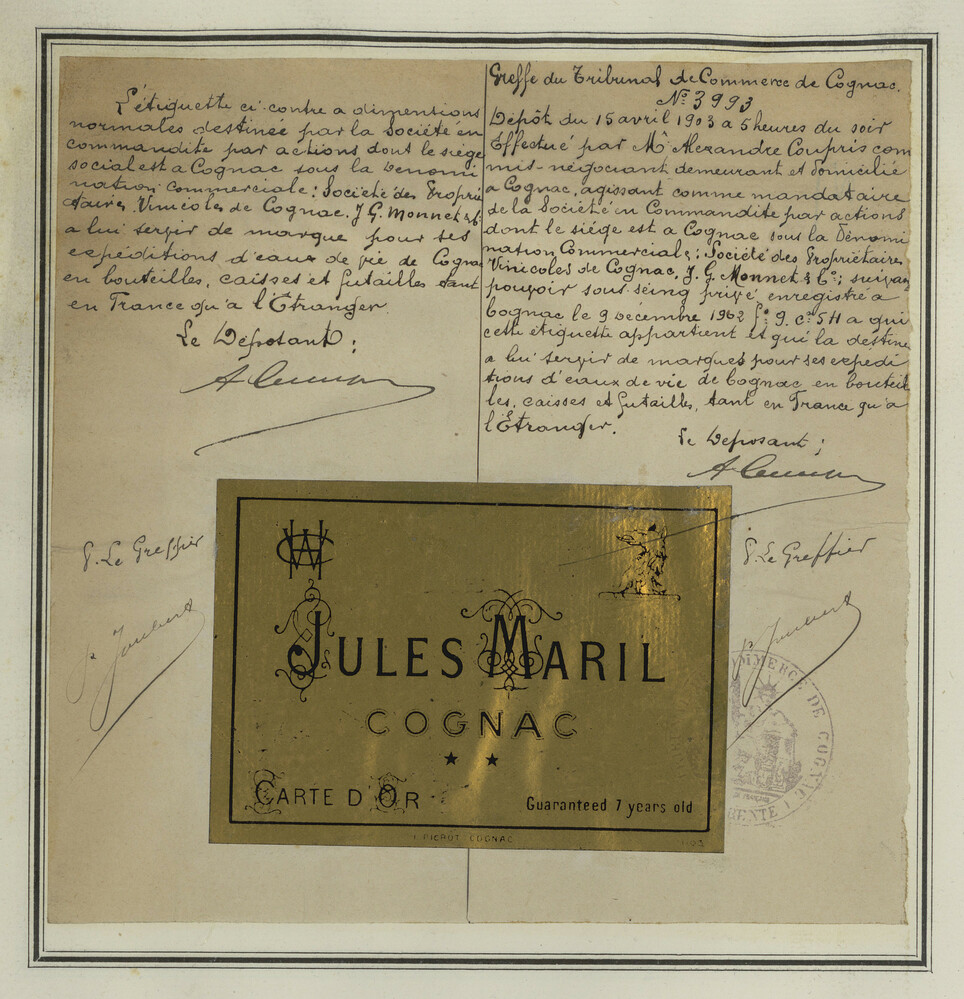 L'étiquette ci-contre a dimentions
normales destinée par la Société en
commandite par actions dont le siége
social est a Cognac sous la Denomi
nation Commerciale: Société des Proprié
taires Vinicoles de Cognac. J. G. Monnet &
a lui servir de marque pour ses
expéditions d'eaux de vie de Cognac
en bouteilles, caisses et futailles tant
en France qu'a l'Etranger
Le Déposant:
P. Le Greffier
P. Joubert
Greffe du Tribunal de Commerce de Cognac.
N° 3993
Dépôt du 15 avril 1903 a 5 heures du soir
Effectué par Mr Alexandre Coupris com
mis-négociant demeurant et domicilié
a Cognac, agissant comme mandataire
de la Société en Commandite par actions
dont le siége est a Cognac sous la Dénomi
nation Commerciale: Société des Propriétaires
Vinicoles de Cognac, J. G. Monnet & Co; suivan
pouvoir sous-seing privé, enregistré a
Cognac le 9 Décembre 1902 fo 9. co 511 a qui
cette étiquette appartient et qui la destine
a lui servir de marques pour ses expedi
tions d'eaux de vie de Cognac en bouteil
les, caisses et futailles, tant en France qu'a
l'Étranger.
Le Deposant;
P. Le Greffier
P. Joubert
COMMERCE DE COGNAC
JULES MARIL
COGNAC
★ ★
CARTE D'OR
Guaranteed 7 years old
COGNAC